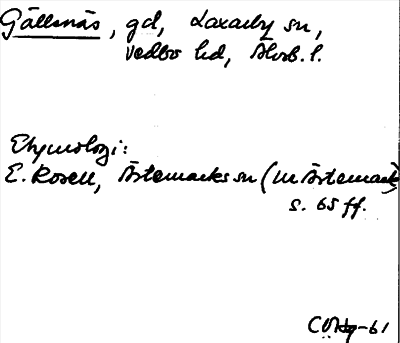 Gällsnäs, gd, Laxarby sn,
Vedbo hd, Älvsb. l.
Etymologi:
E. Rosell, Ärtemarks sn (ur Ärtemark
s. 65 ff.
-61